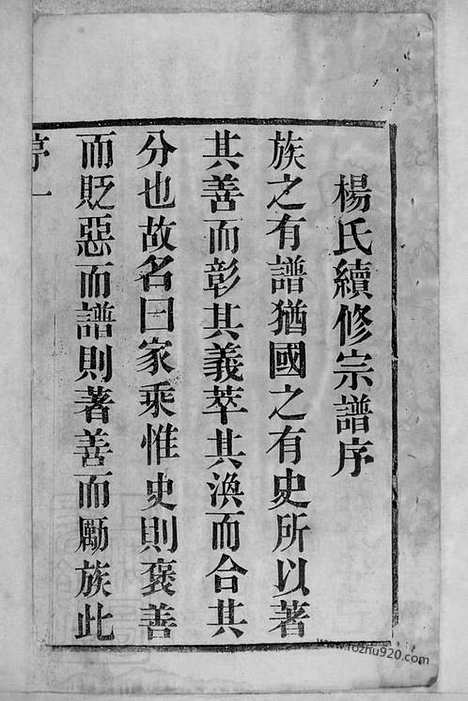 楊氏續修宗譜序
族之有譜猶國之有史所以著
其善而彰其義萃其渙而合其
分也故名曰家乘惟史則褒善
而貶惡而譜則著善而勵族此
序一
www.fozhu920.com